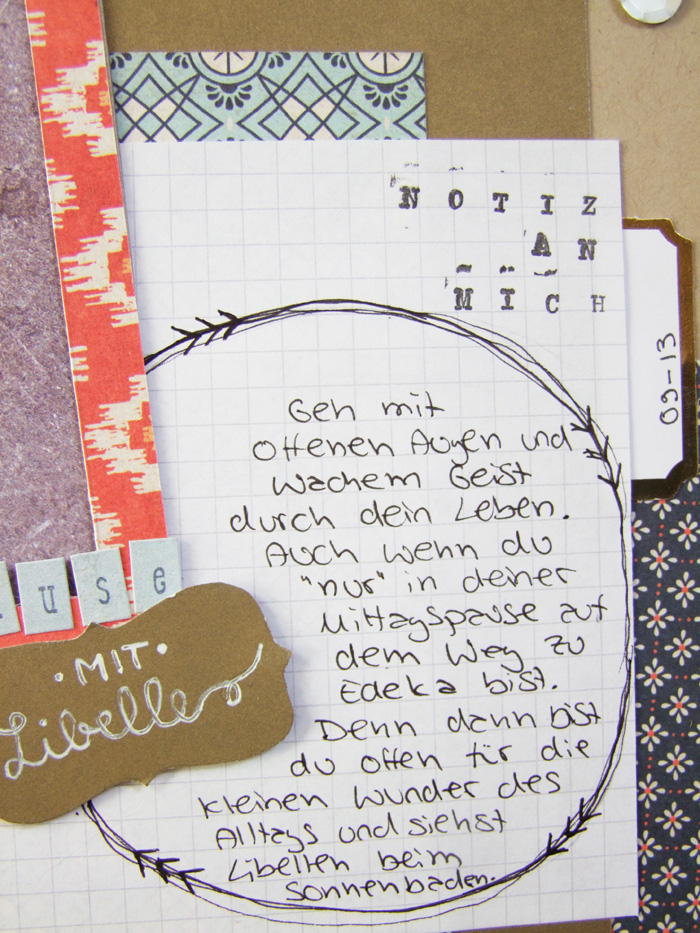 NOTIZ
AN
MICH
09-13
Geh mit
offenen Augen und
wachem Geist
durch dein Leben.
Auch wenn du
"nur" in deiner
Mittagspause auf
dem Weg zu
Edeka bist.
Denn dann bist
du offen für die
kleinen Wunder des
Alltags und siehst
Libellen beim
Sonnenbaden.
use
·MIT·
Libelle